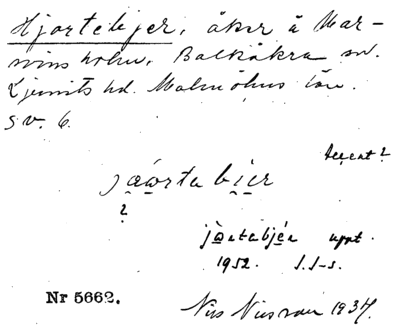 Hjortebjer, åker å Mar-
vinsholm, Balkåkra sn.
Ljunits hd. Malmöhus län.
sv. 6.
accent?
jåo̯rta bi̯er
?
jo̱ɑtabjéɑ uppt.
1952. I.I-s.
Nr 5662.
Nils Nilsson 1937.